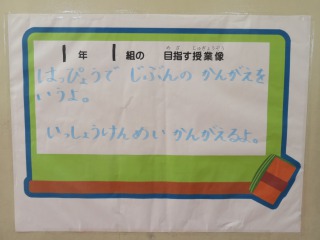 1年 1組の 目指す授業像
はっぴょうで じぶんの かんがえを
いうよ。
いっしょうけんめい かんがえるよ。